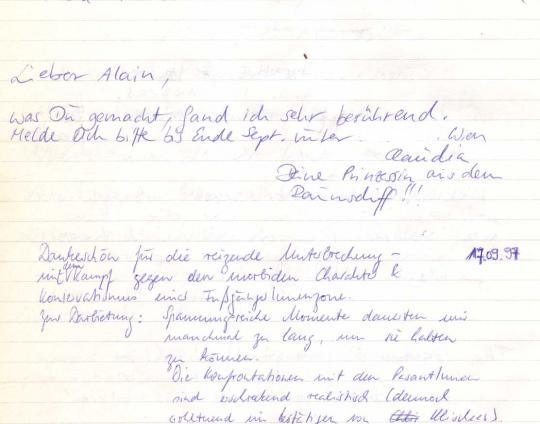 Lieber Alain,
was Du gemacht, fand ich sehr berührend.
Melde Dich bitte bis Ende Sept. unter . . . Wien
Claudia
Deine Prinzessin aus dem
Raumschiff!!!
Dankeschön für die reizende Unterbrechung – 17.09.97
mit dem Kampf gegen den morbiden Charakter &
Konservatismus einer FußgängerInnenzone.
Zur Darbietung: Spannungsreiche Momente dauerten mir
manchmal zu lang, um sie halten
zu können.
Die Konfrontationen mit den PassantInnen
sind realistisch (dennoch
im bestätigen von Klischees).